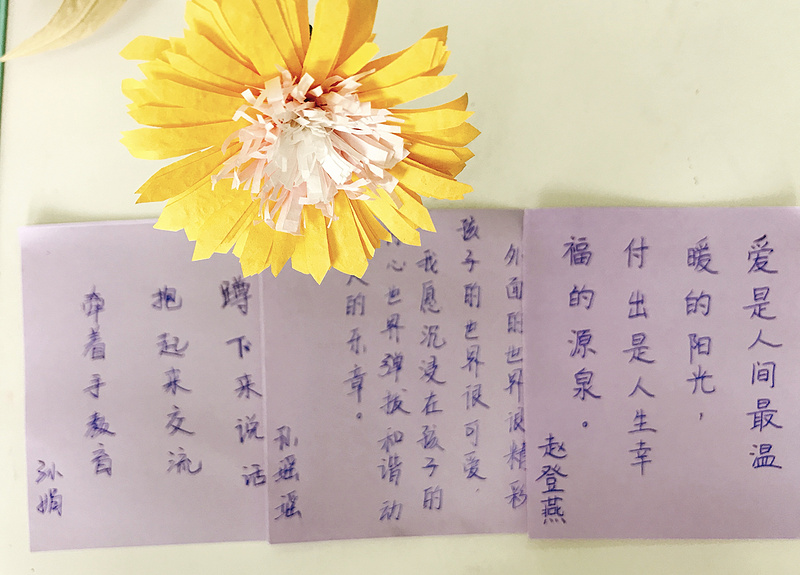 爱是人间最温
暖的阳光，
付出是人生幸
福的源泉。
赵登燕
外面的世界很精彩
孩子的世界很可爱.
我愿沉浸在孩子的
心世界弹拨和谐动
人的乐章。
瑶瑶
蹲下来说话
抱起来交流
牵着手教育
孙娟